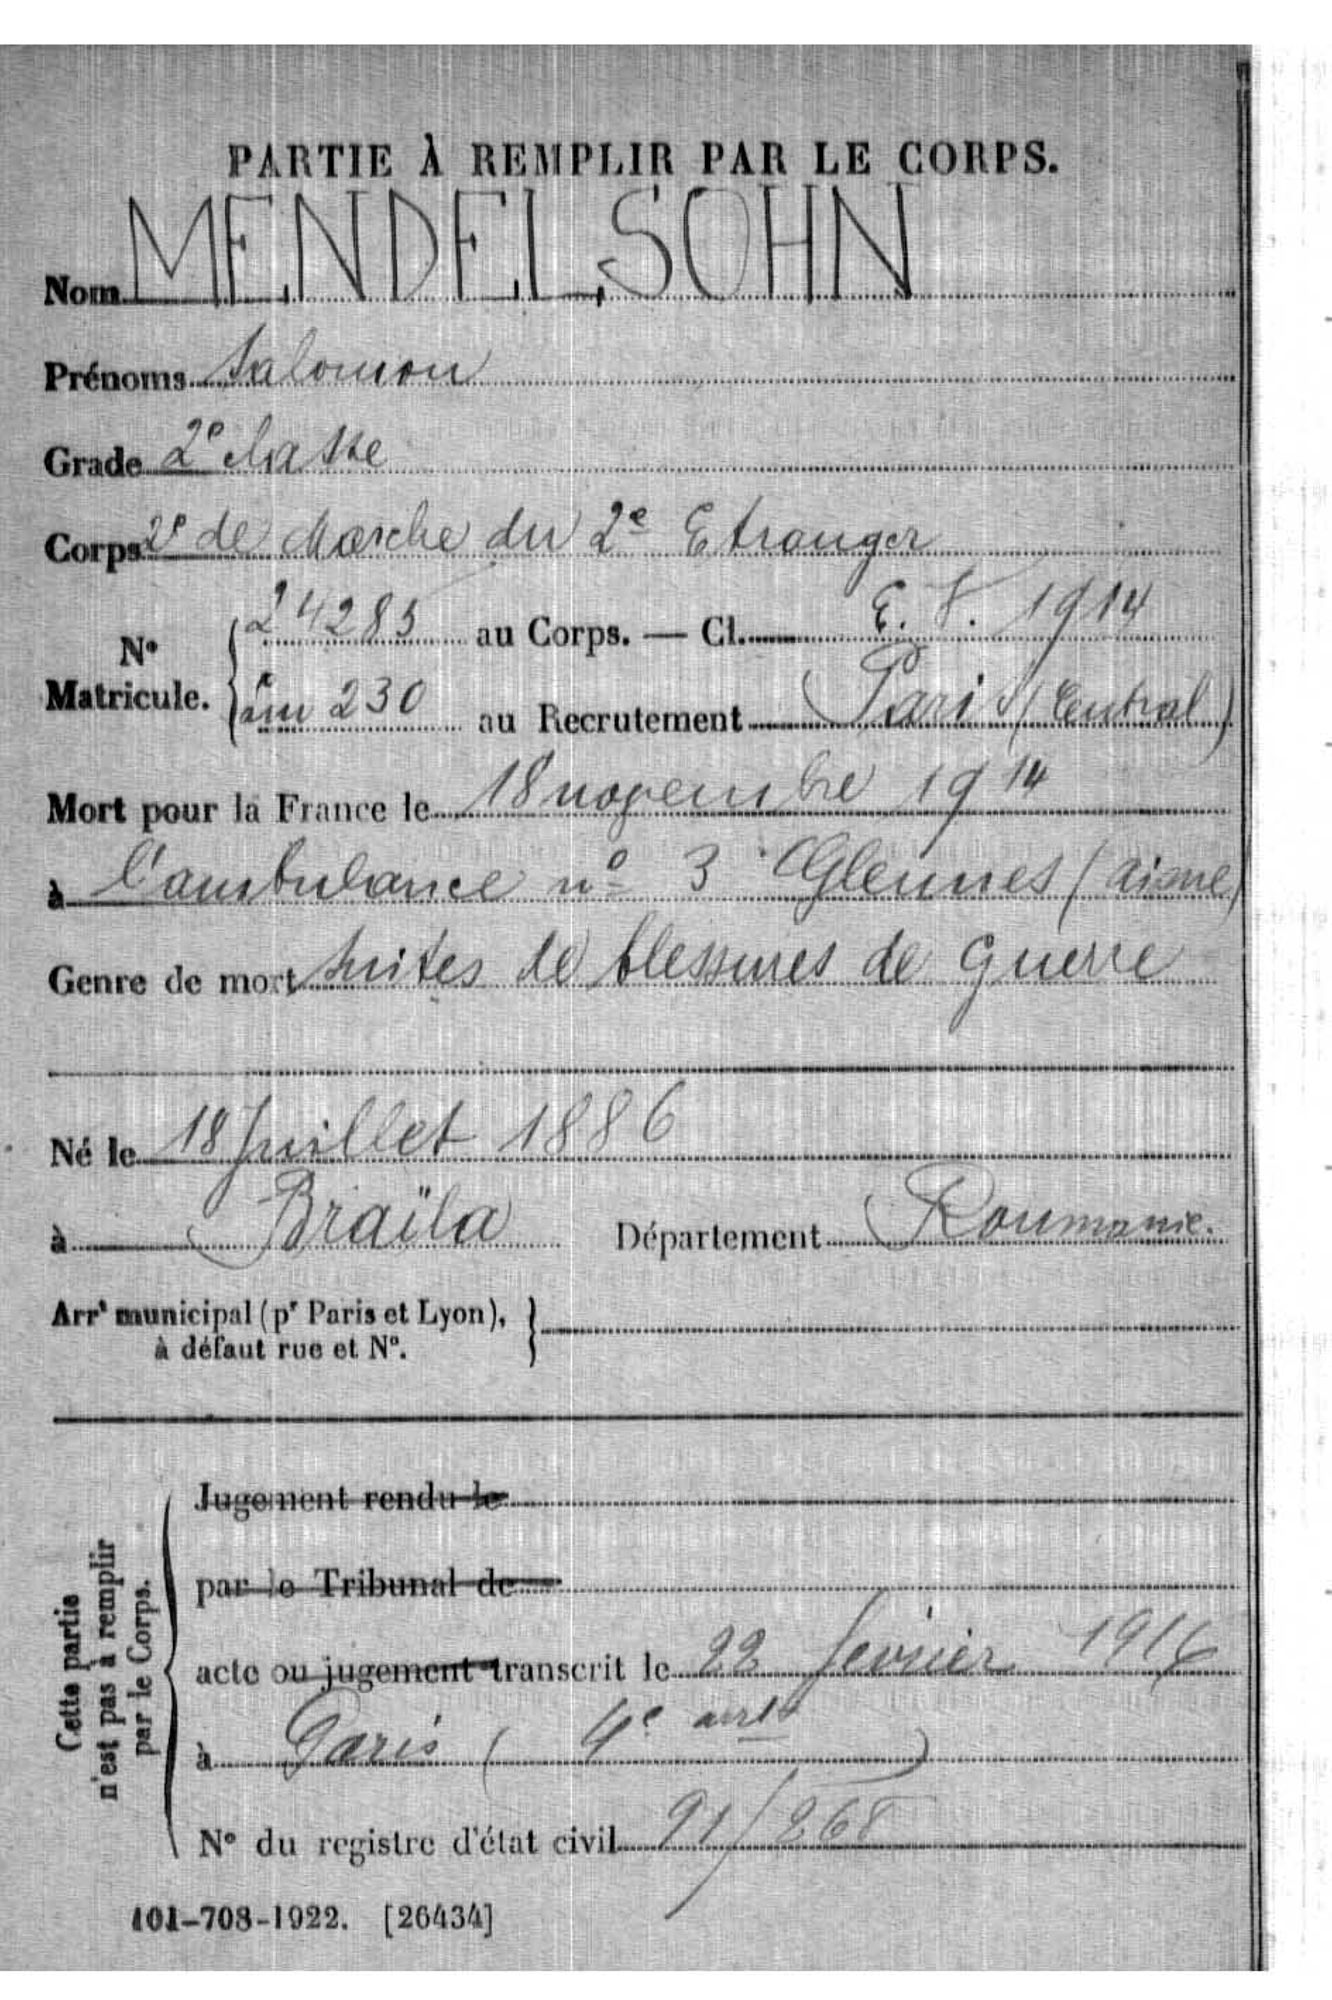 PARTIE À REMPLIR PAR LE CORPS.
Nom MENDELSOHN
Prénoms Salomon
Grade 2e classe
Corps 2e de Marche du 2e Etranger
No Matricule. { 24285 au Corps. — Cl. E. V. 1914
230 au Recrutement Paris (Central)
Mort pour la France le 18 novembre 1914
à l'ambulance no 3 Glennes (aisne)
Genre de mort suites de blessures de guerre
Né le 18 Juillet 1886
à Braïla Département Roumanie.
Arrt municipal (pr Paris et Lyon),
à défaut rue et No.
Cette partie
n'est pas à remplir
par le Corps.
Jugement rendu le
par le Tribunal de
acte ou jugement transcrit le 22 fevrier 1916
à Paris (4e arrt)
No du registre d'état civil 91/268
101-708-1922. [26434]